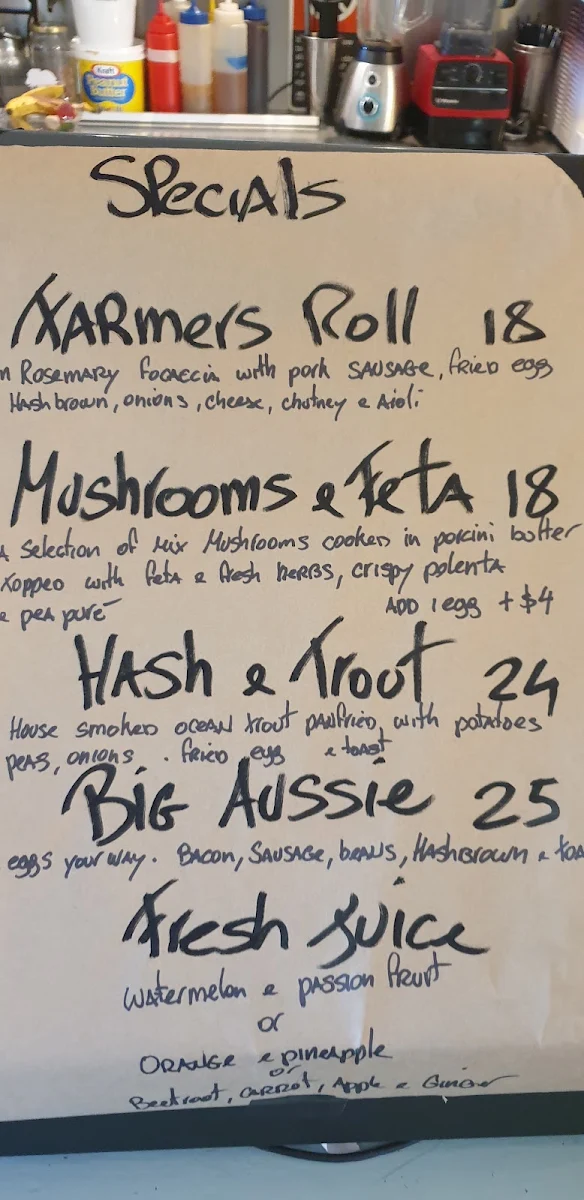 Kraft
Peanut
Butter
Specials
FARmers Roll 18
Rosemary Focaccia with pork SAUSAGE, fried egg
Hashbrown, onions, cheese, chutney e Aioli
Mushrooms e FeTA 18
A selection of mix Mushrooms cooked in porcini butter
Topped with feta e fresh herbs, crispy polenta
e peA puré
ADD 1 egg + $4
HAsh e Trout 24
House smoked ocean trout panfried, with potatoes
peas, onions. fried egg e toast
BiG Aussie 25
eggs your way. Bacon, SAUSAGE, beans, Hashbrown e
Fresh Juice
Watermelon e passion fruit
or
ORANGE e pineapple
or
Beetroot, carrot, Apple e Ginger